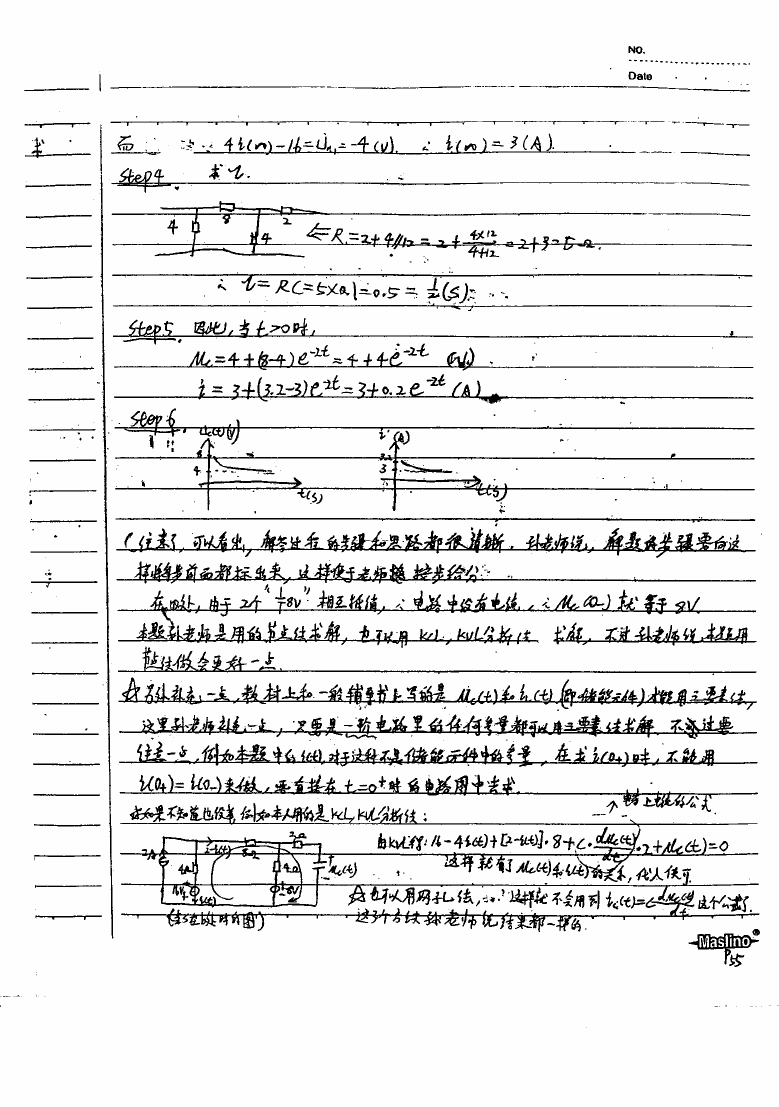 NO.
Date
求
而 ∴ 4i(∞)-16=Un1=-4(V). ∴ i(∞)=3(A).
Step4. 求τ.
4 8 2 4
⇐R=2+4//12=2+(4×12)/(4+12)=2+3=5Ω.
∴ τ=RC=5×0.1=0.5=1/2(S).
Step5. 因此,当t>0时,
Uc=4+(8-4)e^-2t=4+4e^-2t (V).
i=3+(3.2-3)e^-2t=3+0.2e^-2t (A)
Step 6.
Uc(t)(V) 8 4 t(s)
i (A) 3.2 3 t(s)
(注意了,可以看出,解答过程的步骤和思路都很清晰.孙老师说,解题的步骤要向这
样将步骤前面都标出来,这样便于老师按步给分.
在 处,由于2个“8V”相互抵消,∴电路中没有电流,∴Uc(0-)就等于8V.
本题孙老师是用的节点法求解,也可以用KCL,KVL分析法求解,不过孙老师说,本题用
节点法做会更好一点.
☆另外补充一点,教材上和一般辅导书上写的是Uc(t)和iL(t)(即储能元件)才能用三要素法,
这里孙老师补充一点,只要是一阶电路里的任何变量都可以用三要素法求解.不过要
注意一点,例如本题中的i(t),对于这种不是储能元件中的变量,在求i(0+)时,不能用
i(0+)=i(0-)来做,要直接在t=0+时的电路图中去求.
如果不知道也没事,例如本人用的是KCL,KVL分析法:
↗电容上电流的公式
由KVL得:16-4i(t)+[2-i(t)]·8+C·dUc(t)/dt·2+Uc(t)=0
这样就有了Uc(t)和i(t)的关系,代入便可
2A i(t) 8Ω 2Ω 4Ω 4Ω Uc(t) 16V 8V
☆也可以用网孔法, 这样就不会用到ic(t)=C dUc(t)/dt 这个公式了.
这3个方法孙老师说结果都一样的.
Maslino®
P55